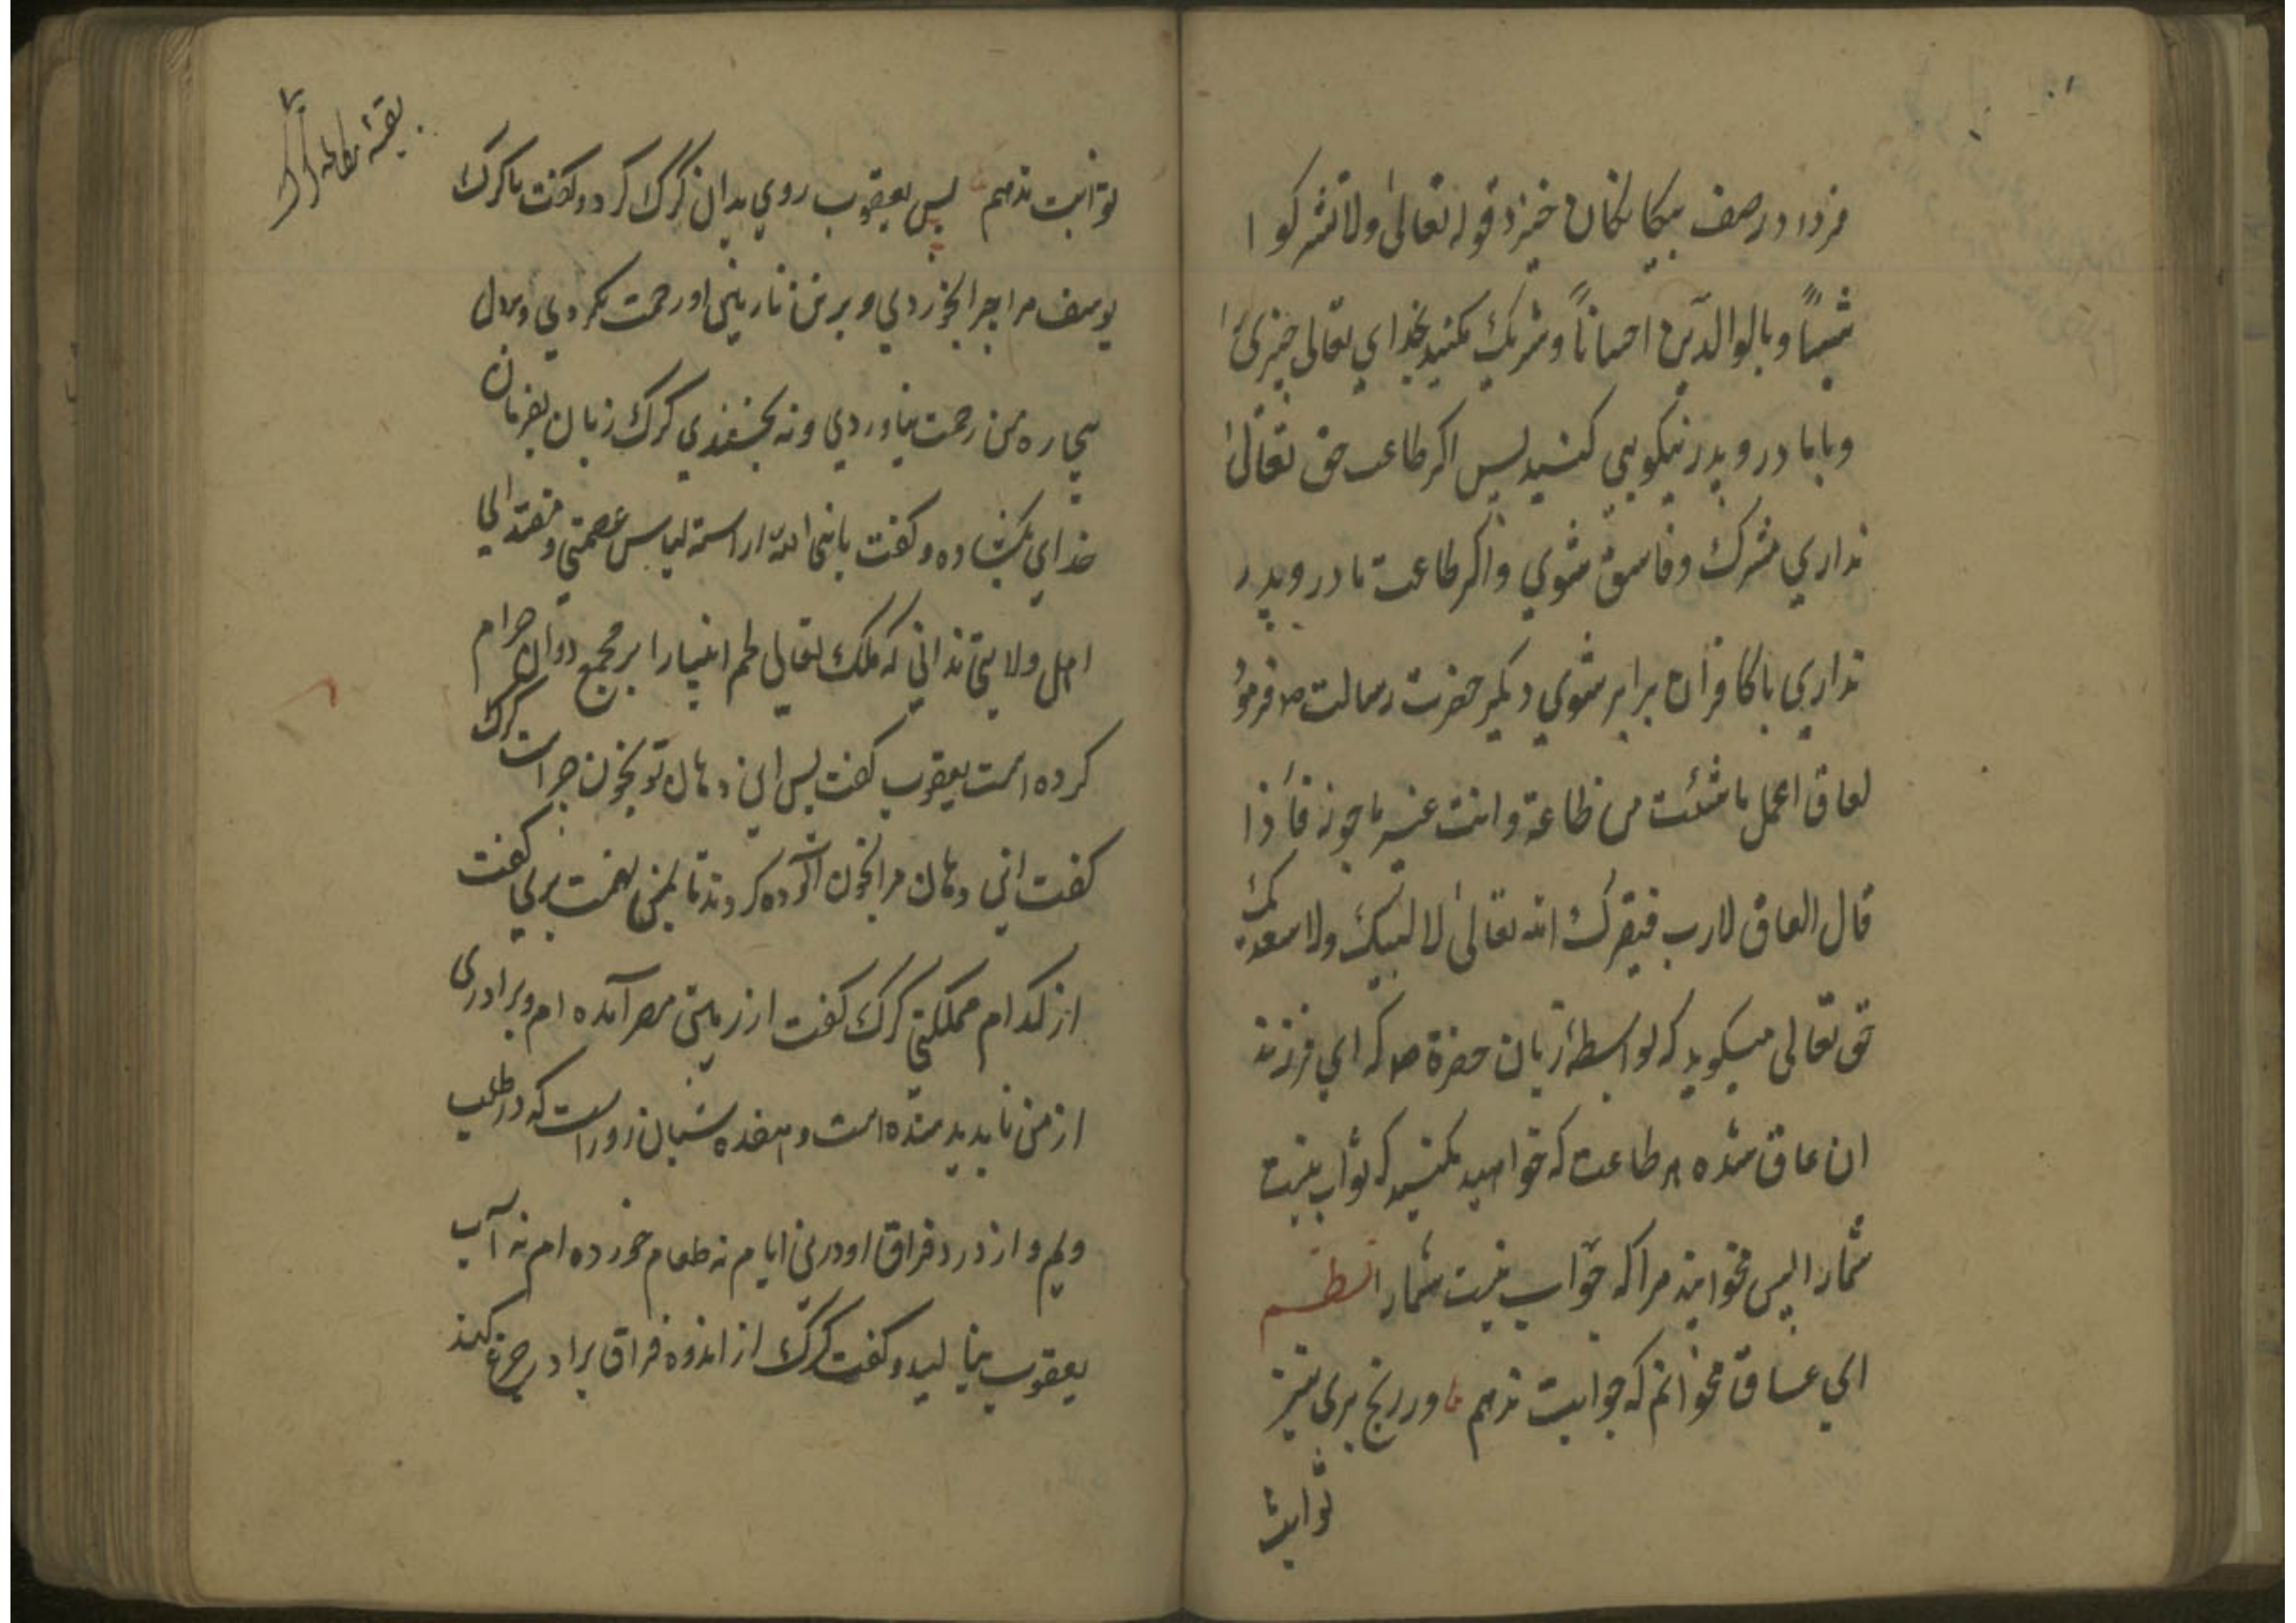 فردا در صف بیکانکان خیزد قوله تعالی ولا تشرکوا
شیئاً وبالوالدین احساناً و شریک مکنید بخدای تعالی چیزی را
و با مادر و پدر نیکویی کنید پس اکر طاعت حق تعالی
نداری مشرک و فاسق شوی و اکر طاعت مادر و پدر
نداری با کافران برابر شوی دیکر حضرت رسالت ص فرمود
لعاق اعمل ما شئت من طاعة و انت غیر ماجوز فأذا
قال العاق لارب الله تعالی لا لبیک ولا سعدیک
حق تعالی میکوید که بواسطۀ زبان حضرة ص که ای فرزند
ان عاق شده هر طاعت که خواهید بکنید که ثواب نیست
شمارا پس نخوانید مرا که جواب نیست شمارا نظم
ای عاق مخوانم که جوابت ندهم ور رنج بری نیز
ثوابت
بقیۀ
ثوابت ندهم پس یعقوب روی بدان کرک کرد و کفت یا کرک
یوسف مرا چرا بخوردی و بر تن نازنین او رحمت نکردی و بدل
بیچاره من رحمت نیاوردی و نه بخشندی کرک زبان بفرمان
خدای بکشاده و کفت یا نبی الله اراسته لباس عصمتی و مقتدای
اهل ولایتی ندانی که ملک تعالی لحم انبیارا بر جمیع ددوان حرام
کرده است یعقوب کفت پس این دهان تو بخون چراست کرک
کفت این دهان مرا بخون آلوده کردند تا بمن تهمت بری کفت
از کدام مملکتی کرک کفت از زمین مصر آمده ام و برادری
از من ناپدید شده است و هفده شبان روز است که در طلب
ویم و از درد فراق او درین ایام نه طعام خورده ام نه آب
یعقوب بنالید و کفت کرک از اندوه فراق برادر جزع کند